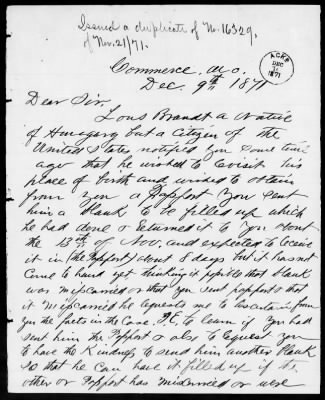 Issued a duplicate of No. 16329.
of Nov. 21/71.
ACKD
DEC
1871
Commerce, Mo.
Dec. 9th 1871
Dear Sir.
Louis Brandt a Native
of Hungary but a Citizen of the
United States notified you some time
ago that he wished to revisit his
place of birth and wished to obtain
from you a Passport You sent
him a blank to be filled up which
he had done & returned it to You about
the 13th of Nov. and expected to receive
it in (the Passport) about 8 days but it has not
Come to hand yet thinking it possible that blank
was miscarried or that you sent passport & that
it miscarried he requests me to ascertain from
You the facts in the Case, I.E, to learn if You had
sent him the Passport & also to request you
to have the Kindness to send him another blank
so that he can have it filled up if the
other or Passport has miscarried or were